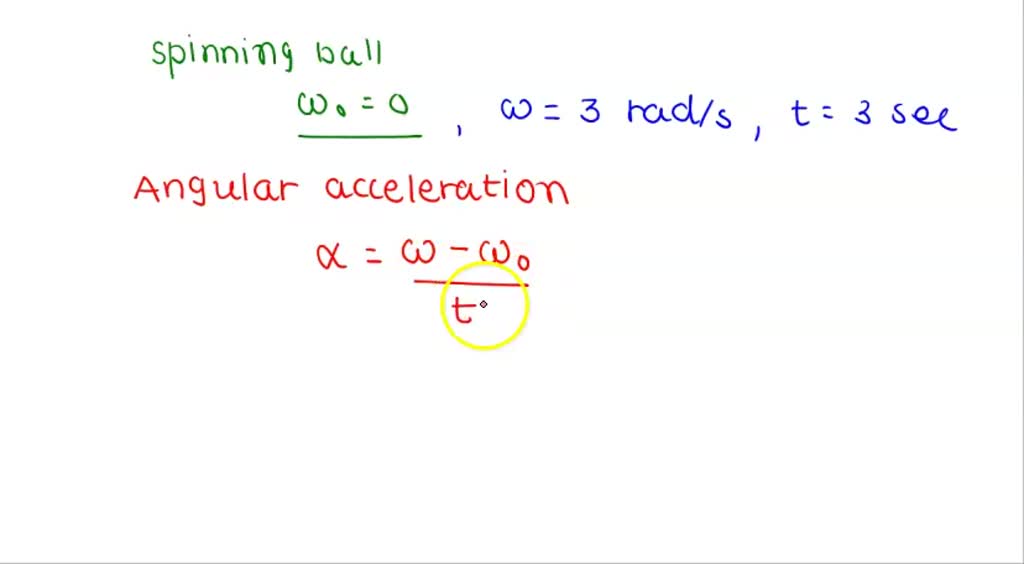 spinning ball
ω₀ = 0 , ω = 3 rad/s , t = 3 sec
Angular acceleration
α = ω - ω₀
t